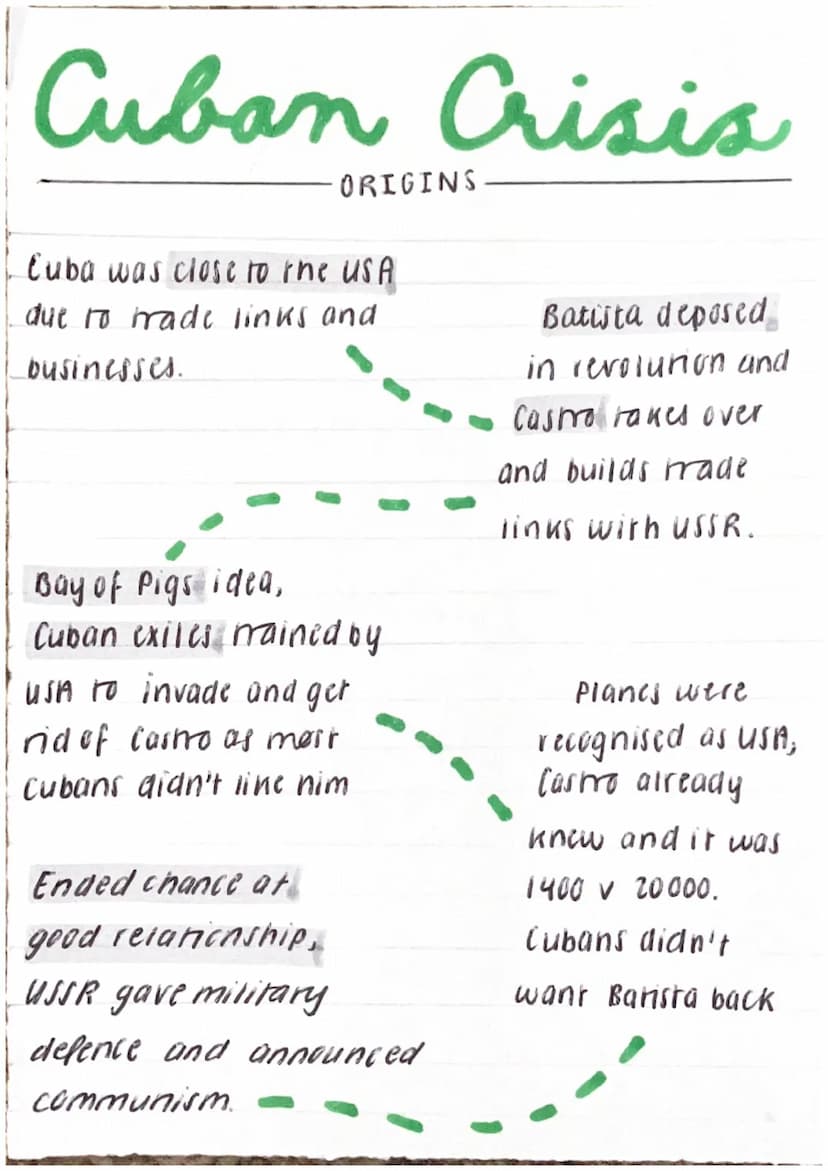 Cuban Crisis
ORIGINS
Cuba was close to the USA
due to trade links and
businesses.
Batista deposed
in revolution and
Castro takes over
and builds trade
links with USSR.
Bay of Pigs idea,
Cuban exiles trained by
USA to invade and get
rid of Castro as most
Cubans didn't like him
Planes were
recognised as USA,
Castro already
knew and it was
1400 v 20000.
Cubans didn't
want Batista back
Ended chance at
good relationship,
USSR gave military
defence and announced
communism.